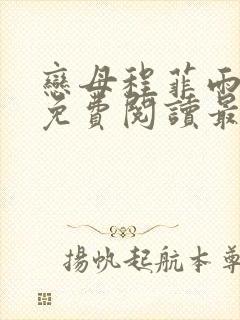 戀母程菲雨
免費閱讀最
揚帆起航本尊